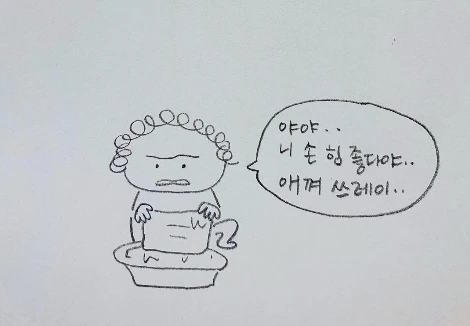 야야..
니 손 힘 좋다야..
애껴 쓰레이..